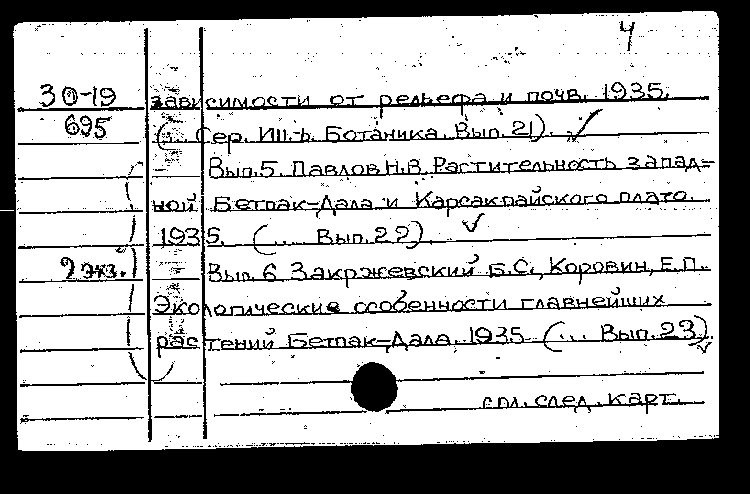 4
30-19 зависимости от рельефа и почв. 1935.
695 (... Сер. III-ь. Ботаника. Вып. 21). ✓
Вып. 5. Павлов Н.В. Растительность запад=
ной Бетпак-Дала и Карсакпайского плато.
1935. (... Вып. 22). ✓
2 экз. Вып. 6. Закржевский Б.С., Коровин, Е.П.
Экологические особенности главнейших
растений Бетпак-Дала. 1935 (... Вып. 23) ✓
см. след. карт.